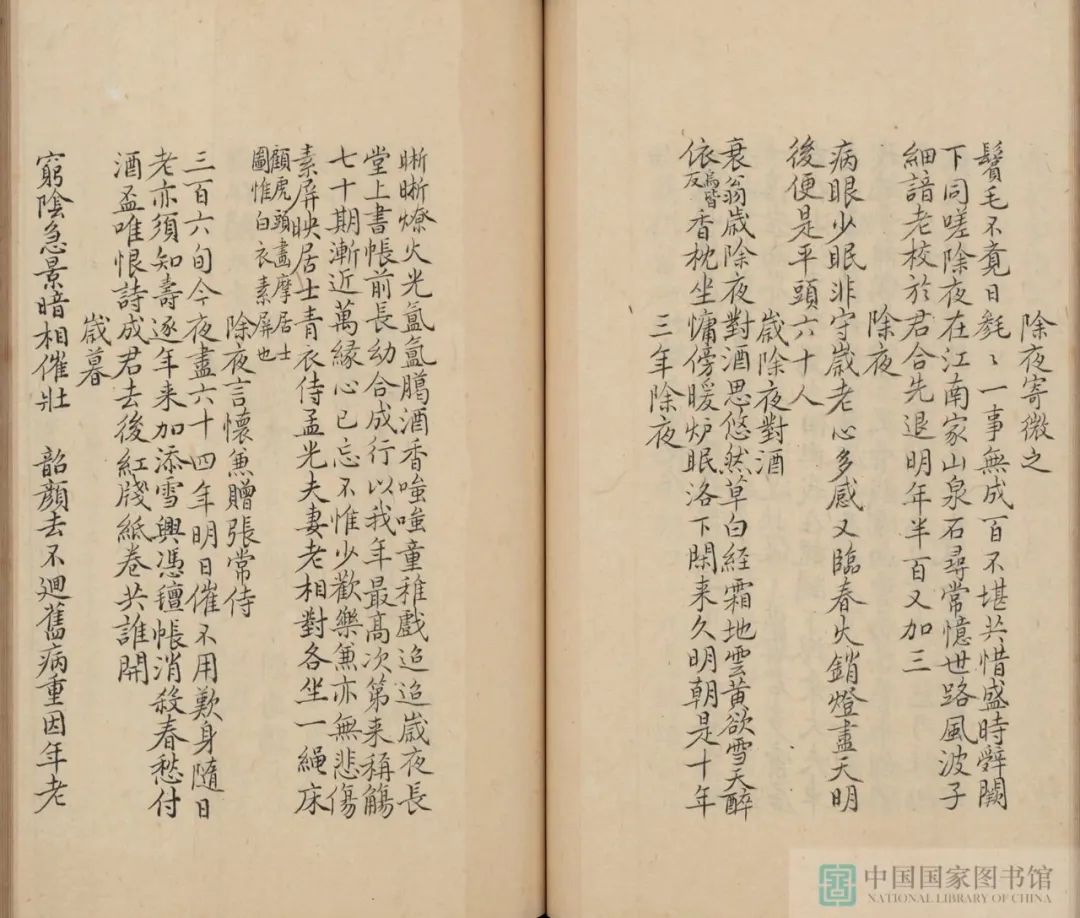 除夜寄微之
鬢毛不覔日毿〻一事無成百不堪共惜盛時辤闕
下同嗟除夜在江南家山泉石尋常憶世路風波子
細諳老校於君合先退明年半百又加三
除夜
病眼少眠非守歳老心多感又臨春火銷燈盡天明
後便是平頭六十人
歳除夜對酒
衰翁歳除夜對酒思悠然草白經霜地雲黄欲雪天醉
依烏皆反香枕坐慵傍暖炉眠洛下閑来久明朝是十年
三年除夜
晣晣燎火光氳氳臈酒香嗤嗤童稚戲迢迢歳夜長
堂上書帳前長幼合成行以我年最髙次第来稱觴
七十期漸近萬縁心已忘不惟少歡樂兼亦無悲傷
素屏映居士青衣侍孟光夫妻老相對各坐一繩床
顧虎頭畫摩居士
圖惟白衣素屏也
除夜言懷兼贈張常侍
三百六旬今夜盡六十四年明日催不用歎身隨日
老亦須知壽逐年来加添雪興憑氊帳消殺春愁付
酒盃唯恨詩成君去後紅牋紙卷共誰開
歳暮
窮陰急景暗相催壯 韶顔去不迴舊病重因年老
中国国家图书馆
NATIONAL LIBRARY OF CHINA